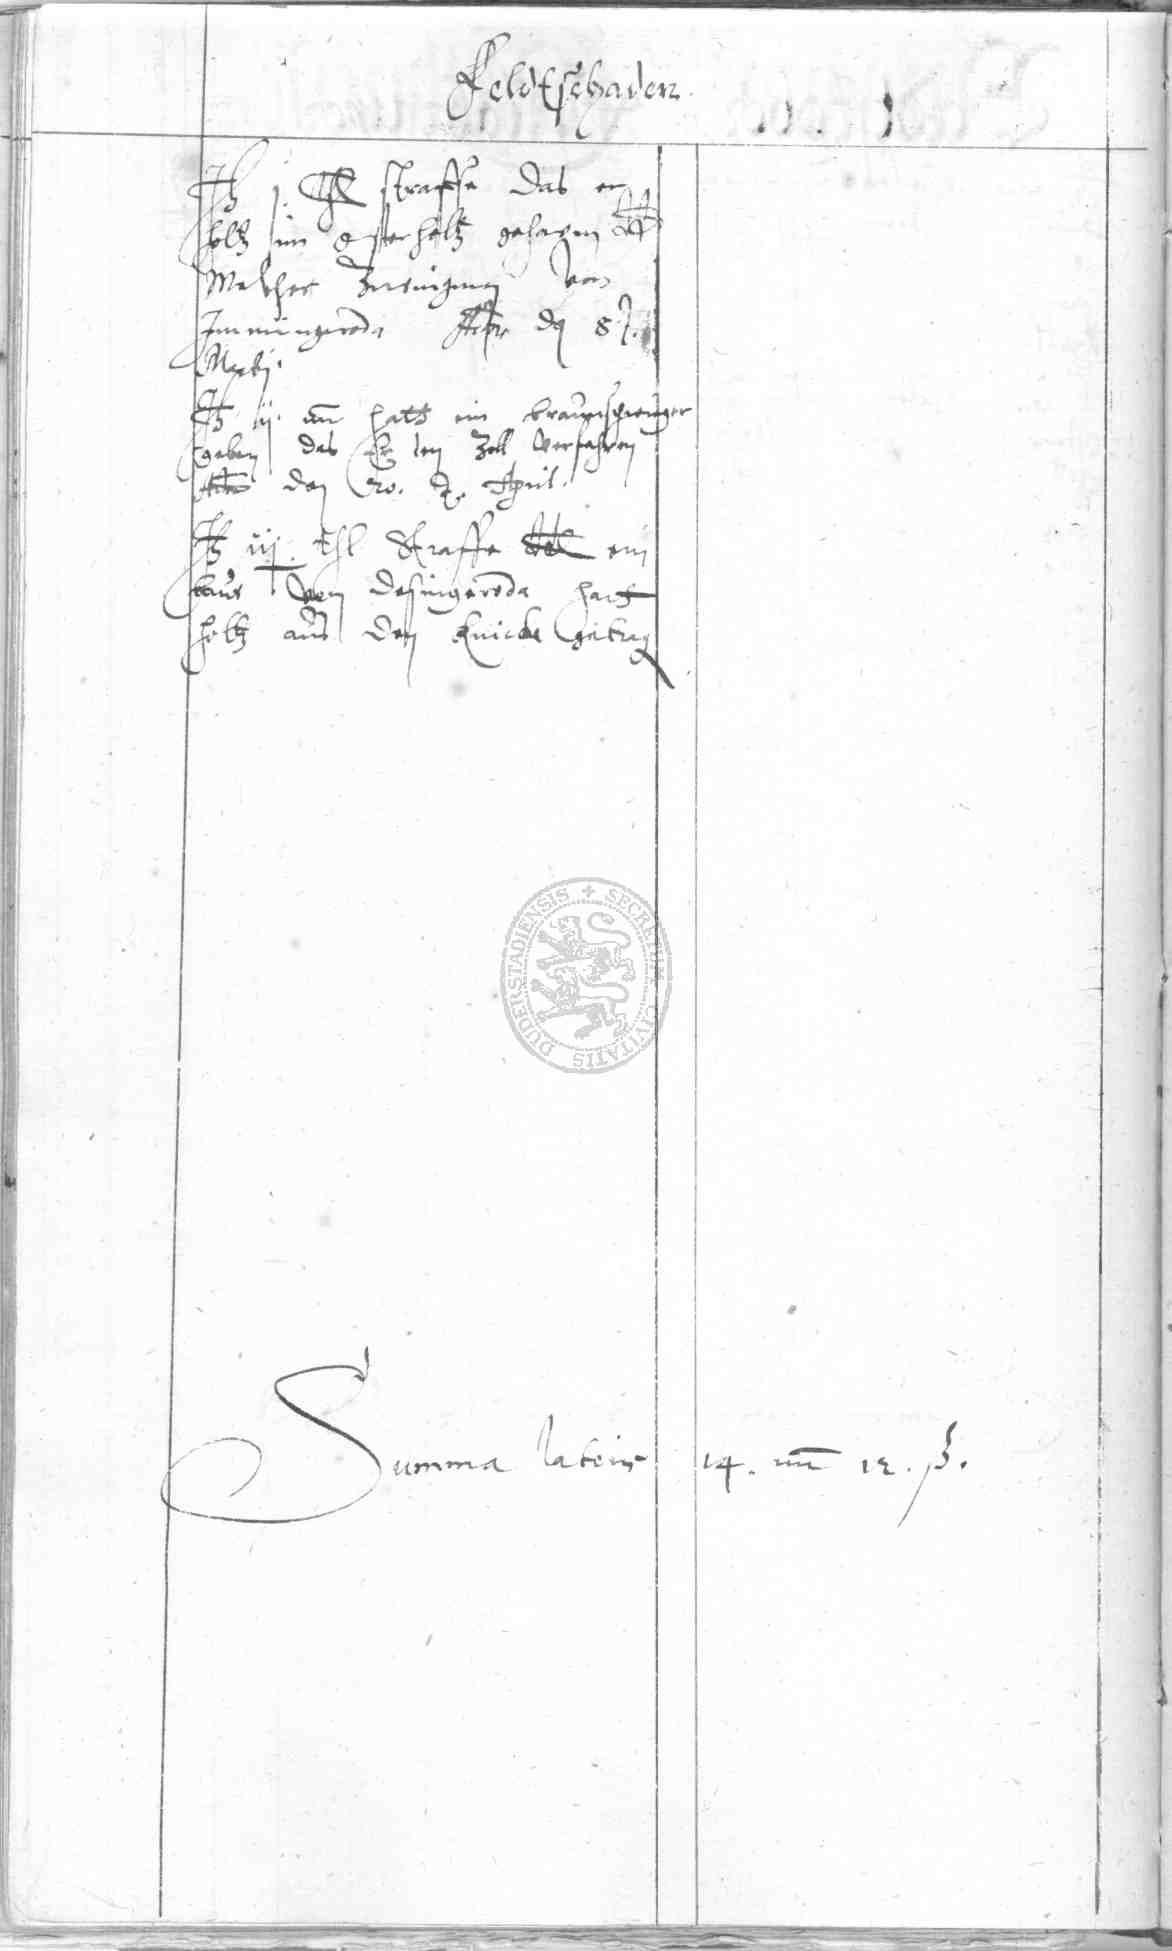 Feldtschaden
It j thl straffe das er
holtz im osterholtz gehawen
Melcher Zwingman von
Immingeroda Actum den 8 
Martij.
It ij. mr hatt ein braunschweiger
geben das Er den Zoll verfahren
Actum den 20. April.
It iij. thl Straffe ein
baur von desingeroda hatt
holtz aus den Knicke getrag
Summa lateris 14. mr 12. ß.
SECRETUM CIVITATIS DUDERSTADIENSIS